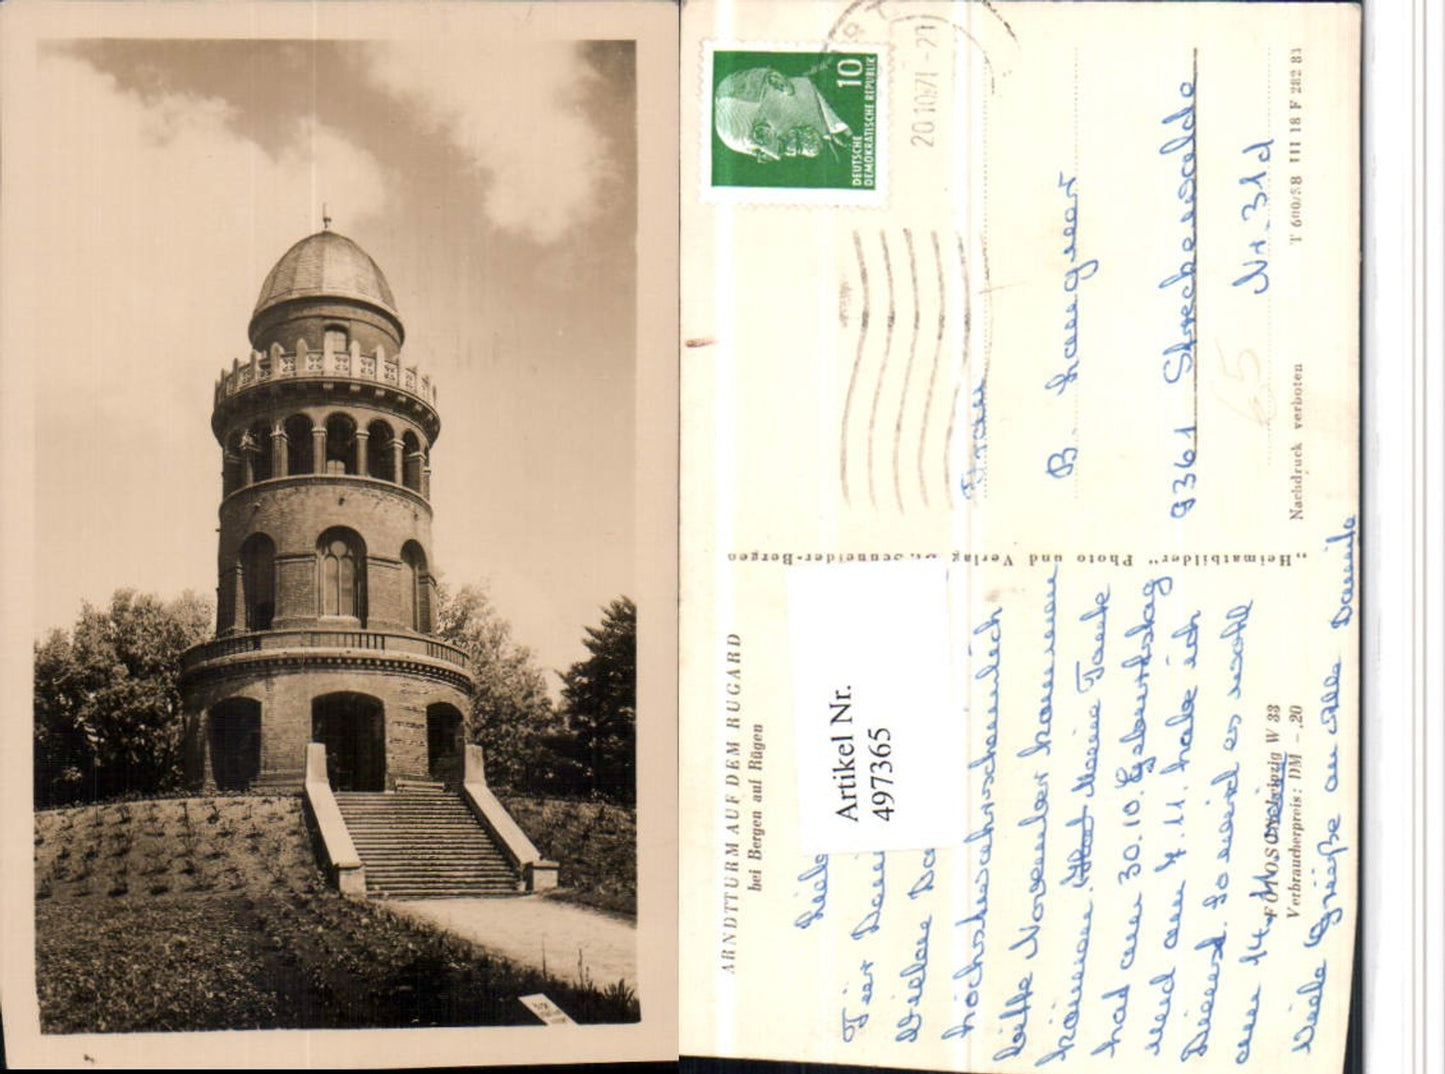 ARNDTTURM AUF DEM RUGARD
bei Bergen auf Rügen
Artikel Nr.
497365
Vielen
höchstwahrscheinlich
Mitte November kommen
können. Meine Tante
hat am 30.10. Geburtstag
und am 7.11. habe ich
Dienst. So wird es wohl
am 14.11.
Viele Grüße an alle
Leipzig W 33
Verbraucherpreis: DM -,20
"Heimatbilder" Photo und Verlag Schneider-Bergen
10
DEUTSCHE
DEMOKRATISCHE REPUBLIK
20.10.71-21
Frau
B.
9361 Streckewalde
Nr. 31d
65
Nachdruck verboten
T 600/58 III 18 F 282 83